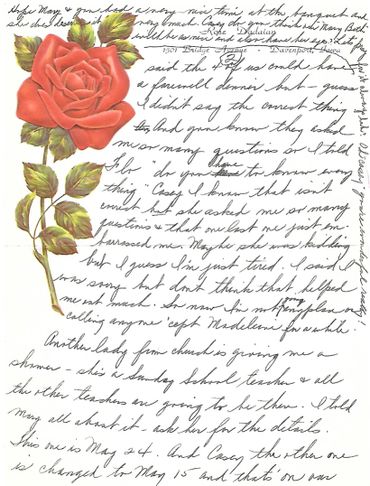 Hope Mary & you had a very nice time at the banquet and
she does deserve it very much. Casey do you think she Mary Beth
would be as nice and
Rose Dadaian
1901 Bridge Avenue - Davenport, Iowa
said the 4 of us could have
a farewell dinner but - guess
I didn't say the correct thing
And you know they asked
me so many questions so I told
Flo "do you have to know every
thing" Casey I know that isn't
correct but she asked me so many
questions & that one last me just em-
barassed me. Maybe she was kidding
but I guess I'm just tired. I said I
was sorry but don't think that helped
me out much. So now I'm not going plan on
calling anyone 'cept Madeleine for a while
Another lady from church is giving me a
shower - she's a Sunday School teacher & all
the other teachers are going to be there. I told
Mary all about it - ask her for the details.
This one is May 24. And Casey the other one
is changed to May 15 and that's on our